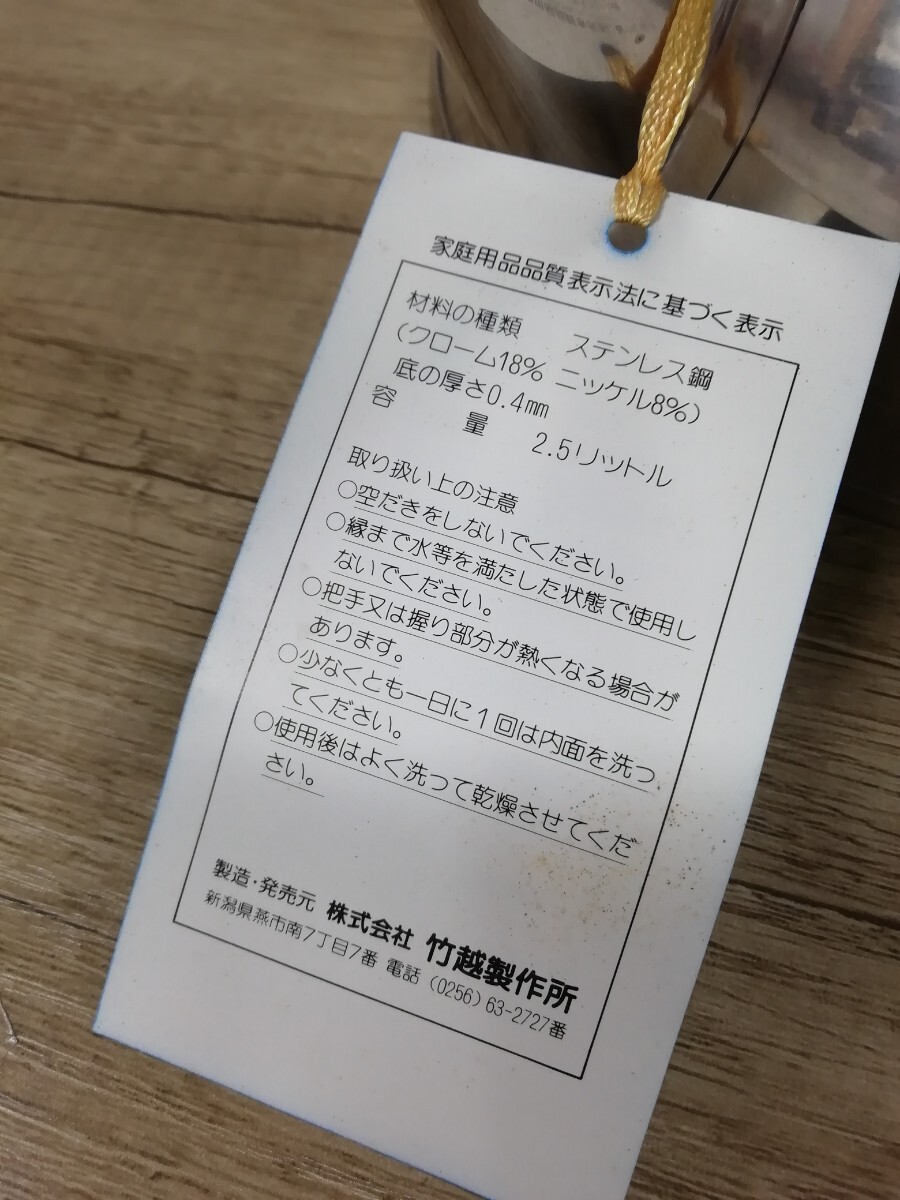 家庭用品品質表示法に基づく表示
材料の種類 ステンレス鋼
(クローム18% ニッケル8%)
底の厚さ0.4mm
容 量 2.5リットル
取り扱い上の注意
○空だきをしないでください。
○縁まで水等を満たした状態で使用し
ないでください。
○把手又は握り部分が熱くなる場合が
あります。
○少なくとも一日に1回は内面を洗っ
てください。
○使用後はよく洗って乾燥させてくだ
さい。
製造・発売元 株式会社 竹越製作所
新潟県燕市南7丁目7番 電話(0256)63-2727番